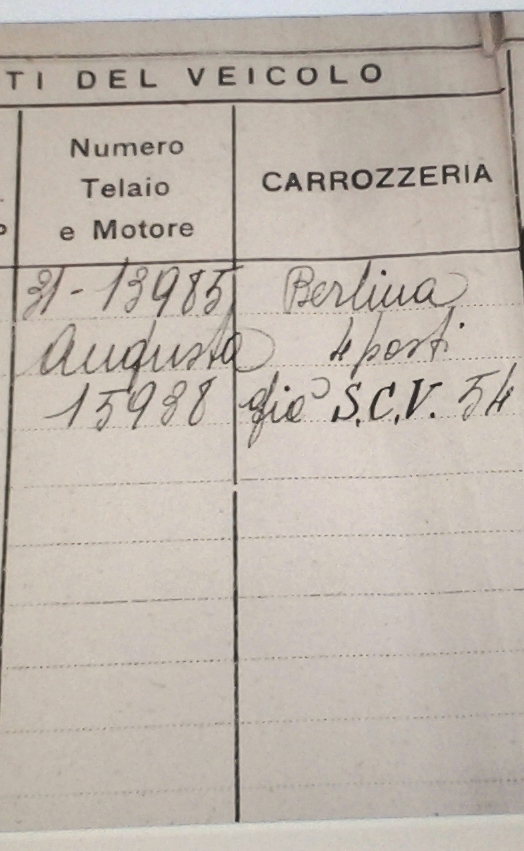 TI DEL VEICOLO
Numero
Telaio
e Motore
CARROZZERIA
31-13985 Berlina
Augusta 4 posti
15938 già S.C.V. 54